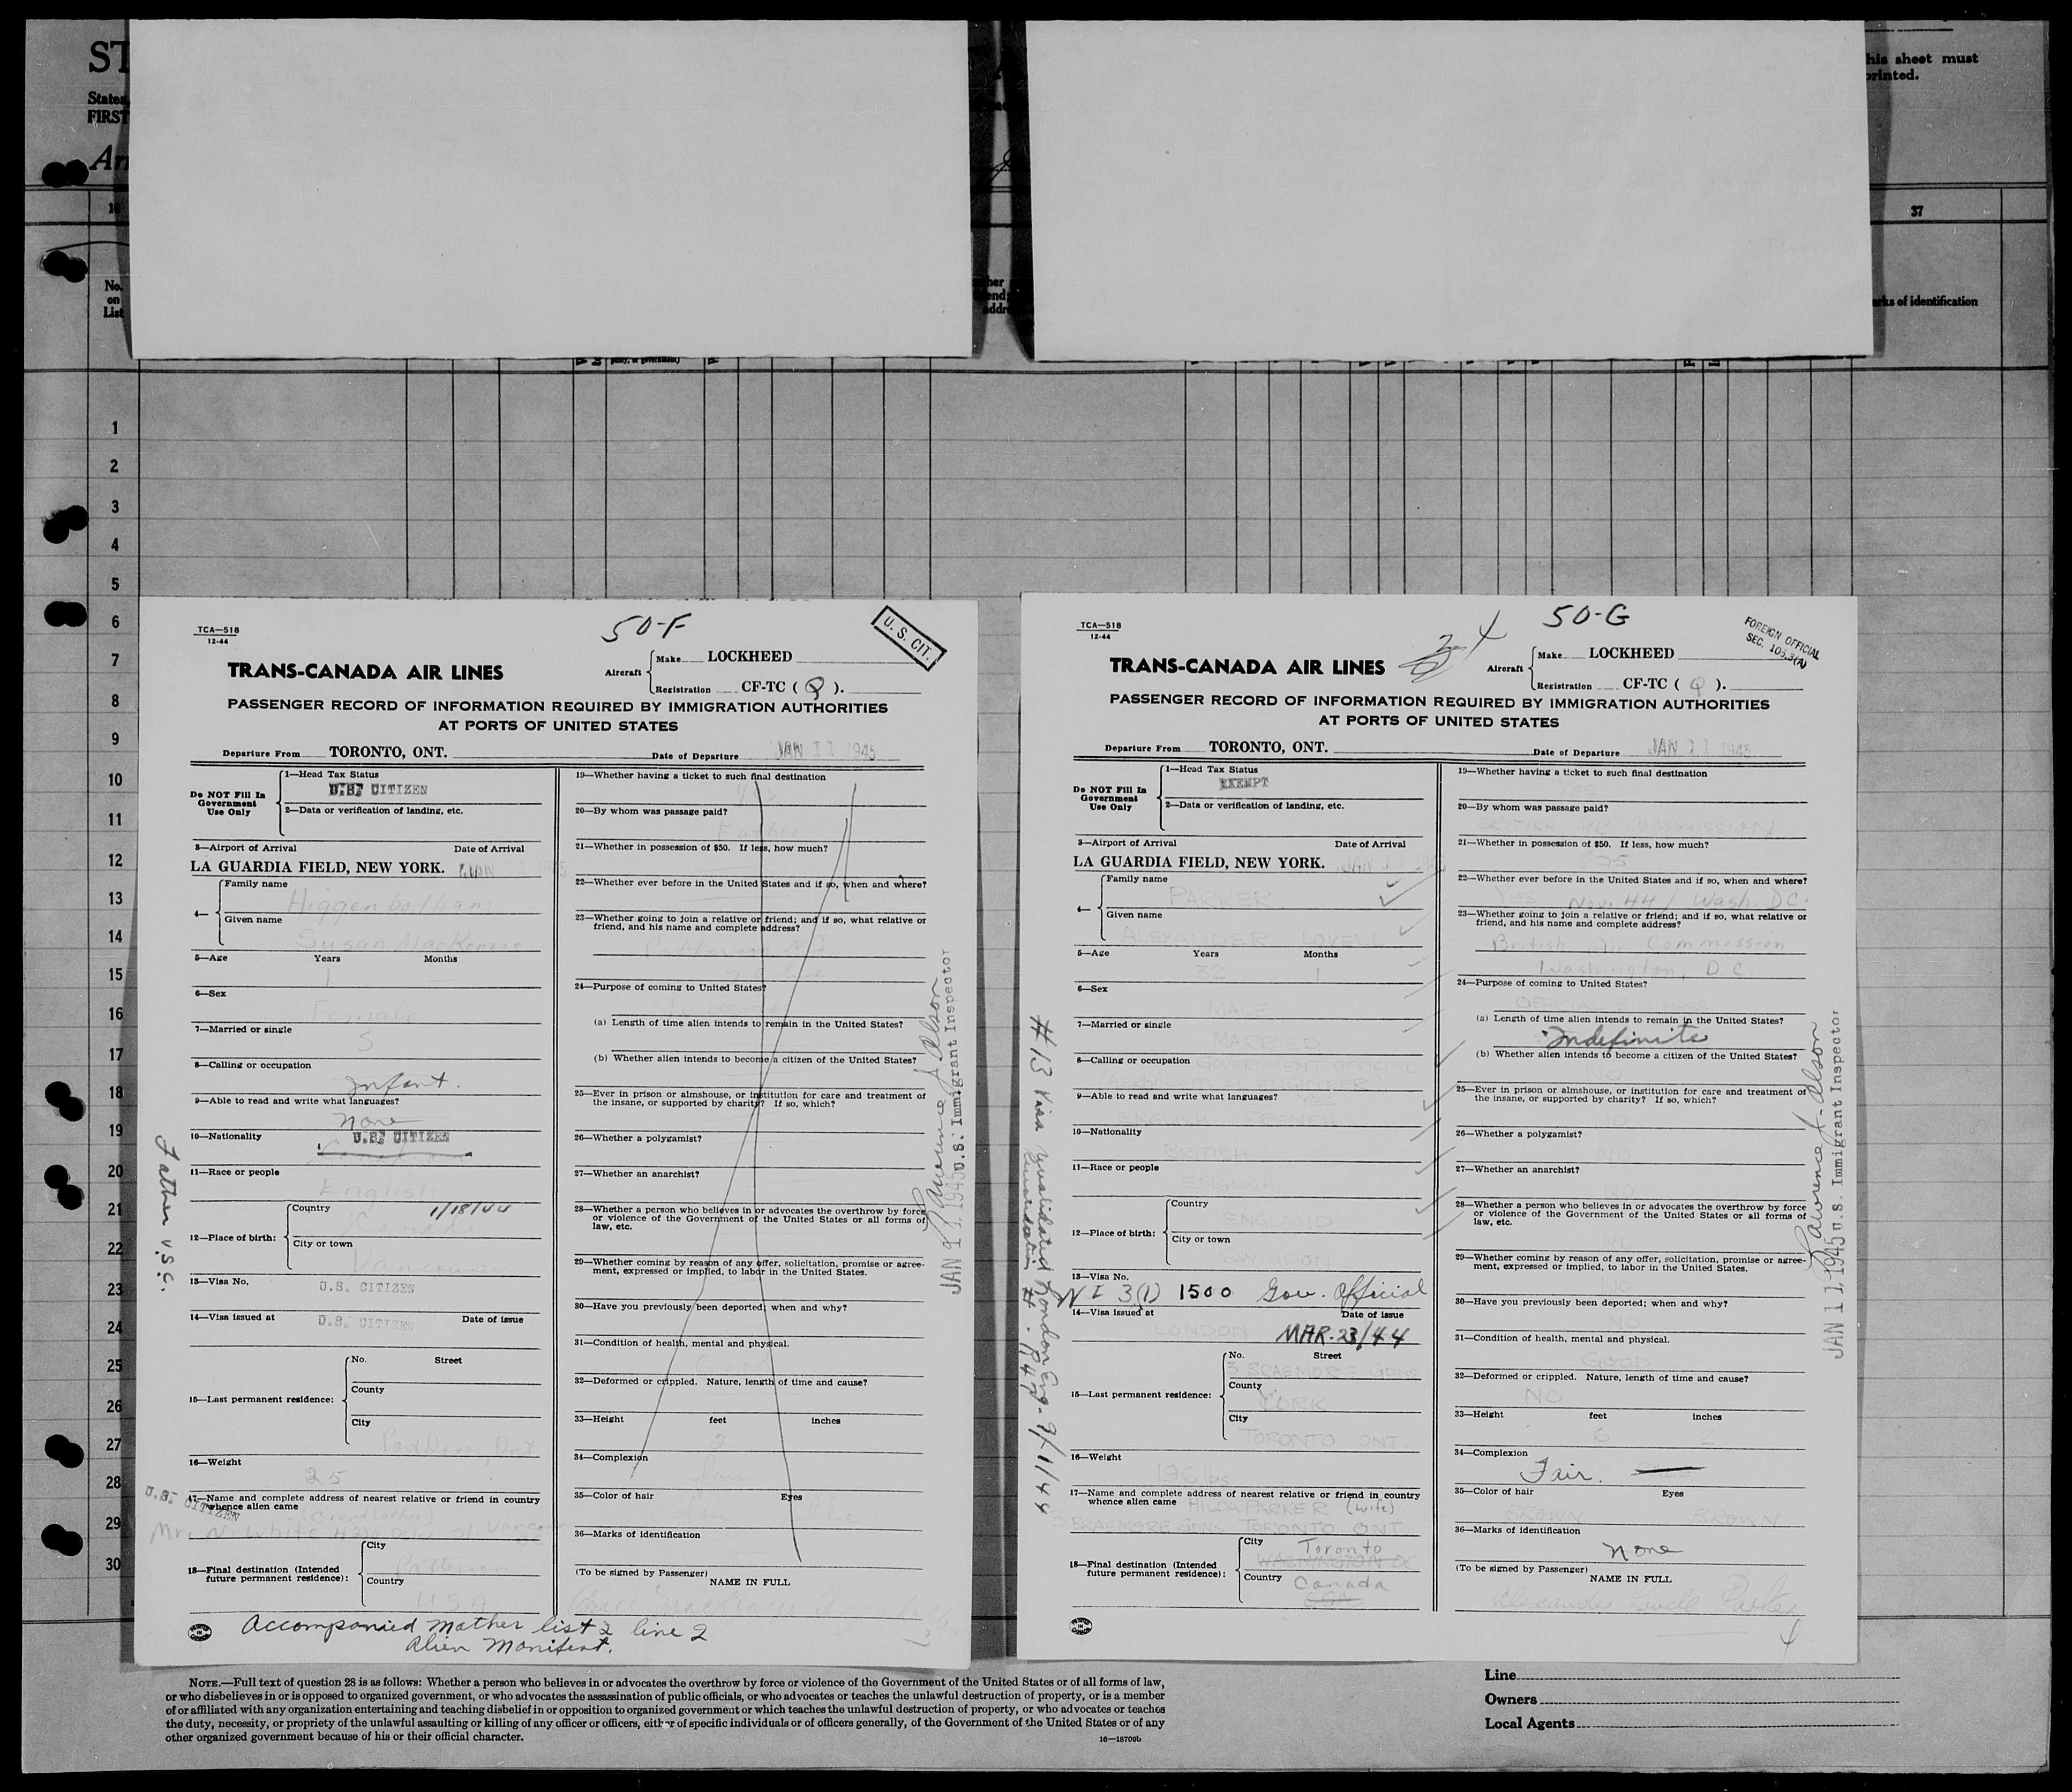 ST
States,
FIRST
An
his sheet must
printed.
16
37
No.
on
List
her
end,
addre
rks of identification
1
2
3
4
5
6
7
8
9
10
11
12
13
14
15
16
17
18
19
20
21
22
23
24
25
26
27
28
29
30
TCA—518
12-44
50-F
U. S. CIT.
TRANS-CANADA AIR LINES
Aircraft
Make LOCKHEED
Registration CF-TC ( Q ).
PASSENGER RECORD OF INFORMATION REQUIRED BY IMMIGRATION AUTHORITIES
AT PORTS OF UNITED STATES
Departure From TORONTO, ONT. Date of Departure JAN 11 1945
Do NOT Fill In
Government
Use Only
1—Head Tax Status
U.S. CITIZEN
2—Data or verification of landing, etc.
3—Airport of Arrival Date of Arrival
LA GUARDIA FIELD, NEW YORK.
4—
Family name
Higgenbotham
Given name
Susan MacKenzie
5—Age Years Months
1
6—Sex
Female
7—Married or single
S
8—Calling or occupation
Infant.
9—Able to read and write what languages?
None
10—Nationality U.S. CITIZEN
11—Race or people
English
12—Place of birth:
Country 1/18/44
Canada
City or town
Vancouver
13—Visa No.
U.S. CITIZEN
14—Visa issued at U.S. CITIZEN Date of issue
15—Last permanent residence:
No. Street
County
City
16—Weight
25
U.S. CITIZEN
17—Name and complete address of nearest relative or friend in country
whence alien came
(Grandfather)
18—Final destination (Intended
future permanent residence):
City
Country
U.S.A
19—Whether having a ticket to such final destination
20—By whom was passage paid?
Father
21—Whether in possession of $50. If less, how much?
22—Whether ever before in the United States and if so, when and where?
23—Whether going to join a relative or friend; and if so, what relative or
friend, and his name and complete address?
24—Purpose of coming to United States?
(a) Length of time alien intends to remain in the United States?
(b) Whether alien intends to become a citizen of the United States?
25—Ever in prison or almshouse, or institution for care and treatment of
the insane, or supported by charity? If so, which?
26—Whether a polygamist?
27—Whether an anarchist?
28—Whether a person who believes in or advocates the overthrow by force
or violence of the Government of the United States or all forms of
law, etc.
29—Whether coming by reason of any offer, solicitation, promise or agree-
ment, expressed or implied, to labor in the United States.
30—Have you previously been deported; when and why?
31—Condition of health, mental and physical.
32—Deformed or crippled. Nature, length of time and cause?
33—Height feet inches
2
34—Complexion
fair
35—Color of hair Eyes
36—Marks of identification
(To be signed by Passenger)
NAME IN FULL
Accompanied mother list 2 line 2
Alien Manifest.
Father U.S.C.
Lawrence A. Olson
JAN 11 1945 U.S. Immigrant Inspector
TCA—518
12-44
50-G
4
FOREIGN OFFICIAL
SEC. 103.3(A)
TRANS-CANADA AIR LINES
Aircraft
Make LOCKHEED
Registration CF-TC ( Q ).
PASSENGER RECORD OF INFORMATION REQUIRED BY IMMIGRATION AUTHORITIES
AT PORTS OF UNITED STATES
Departure From TORONTO, ONT. Date of Departure JAN 11 1945
Do NOT Fill In
Government
Use Only
1—Head Tax Status
EXEMPT
2—Data or verification of landing, etc.
3—Airport of Arrival Date of Arrival
LA GUARDIA FIELD, NEW YORK. JAN 11 1945
4—
Family name
PARKER
Given name
ALEXANDER LOVELL
5—Age Years Months
32 1
6—Sex
MALE
7—Married or single
MARRIED
8—Calling or occupation GOVERNMENT OFFICIAL
9—Able to read and write what languages?
10—Nationality
BRITISH
11—Race or people
ENGLISH
12—Place of birth:
Country
ENGLAND
City or town
SWINDON
13—Visa No.
NI 3(1) 1500 Gov. Official
14—Visa issued at Date of issue
LONDON MAR. 23/44
15—Last permanent residence:
No. Street
3 BRAEMORE GDNS
County
YORK
City
TORONTO ONT
16—Weight
196 lbs
17—Name and complete address of nearest relative or friend in country
whence alien came HILDA PARKER (wife)
3 BRAEMORE GDNS TORONTO ONT
18—Final destination (Intended
future permanent residence):
City Toronto
WASHINGTON DC
Country Canada
USA
19—Whether having a ticket to such final destination
20—By whom was passage paid?
BRITISH AIR COMMISSION
21—Whether in possession of $50. If less, how much?
25
22—Whether ever before in the United States and if so, when and where?
Yes Nov. 44 / Wash. D.C.
23—Whether going to join a relative or friend; and if so, what relative or
friend, and his name and complete address?
British Air Commission
Washington, D.C.
24—Purpose of coming to United States?
OFFICIAL BUSINESS
(a) Length of time alien intends to remain in the United States?
Indefinite
(b) Whether alien intends to become a citizen of the United States?
NO
25—Ever in prison or almshouse, or institution for care and treatment of
the insane, or supported by charity? If so, which?
NO
26—Whether a polygamist?
NO
27—Whether an anarchist?
28—Whether a person who believes in or advocates the overthrow by force
or violence of the Government of the United States or all forms of
law, etc.
NO
29—Whether coming by reason of any offer, solicitation, promise or agree-
ment, expressed or implied, to labor in the United States.
NO
30—Have you previously been deported; when and why?
NO
31—Condition of health, mental and physical.
GOOD
32—Deformed or crippled. Nature, length of time and cause?
NO
33—Height feet inches
6 2
34—Complexion
Fair.
35—Color of hair Eyes
BROWN BROWN
36—Marks of identification
None
(To be signed by Passenger)
NAME IN FULL
Alexander Lovell Parker
4
#13 Visa revalidated London Eng - 9/11/44
Lawrence A. Olson
JAN 11 1945 U.S. Immigrant Inspector
NOTE.—Full text of question 28 is as follows: Whether a person who believes in or advocates the overthrow by force or violence of the Government of the United States or of all forms of law,
or who disbelieves in or is opposed to organized government, or who advocates the assassination of public officials, or who advocates or teaches the unlawful destruction of property, or is a member
of or affiliated with any organization entertaining and teaching disbelief in or opposition to organized government or which teaches the unlawful destruction of property, or who advocates or teaches
the duty, necessity, or propriety of the unlawful assaulting or killing of any officer or officers, either of specific individuals or of officers generally, of the Government of the United States or of any
other organized government because of his or their official character.
16—18709b
Line
Owners
Local Agents